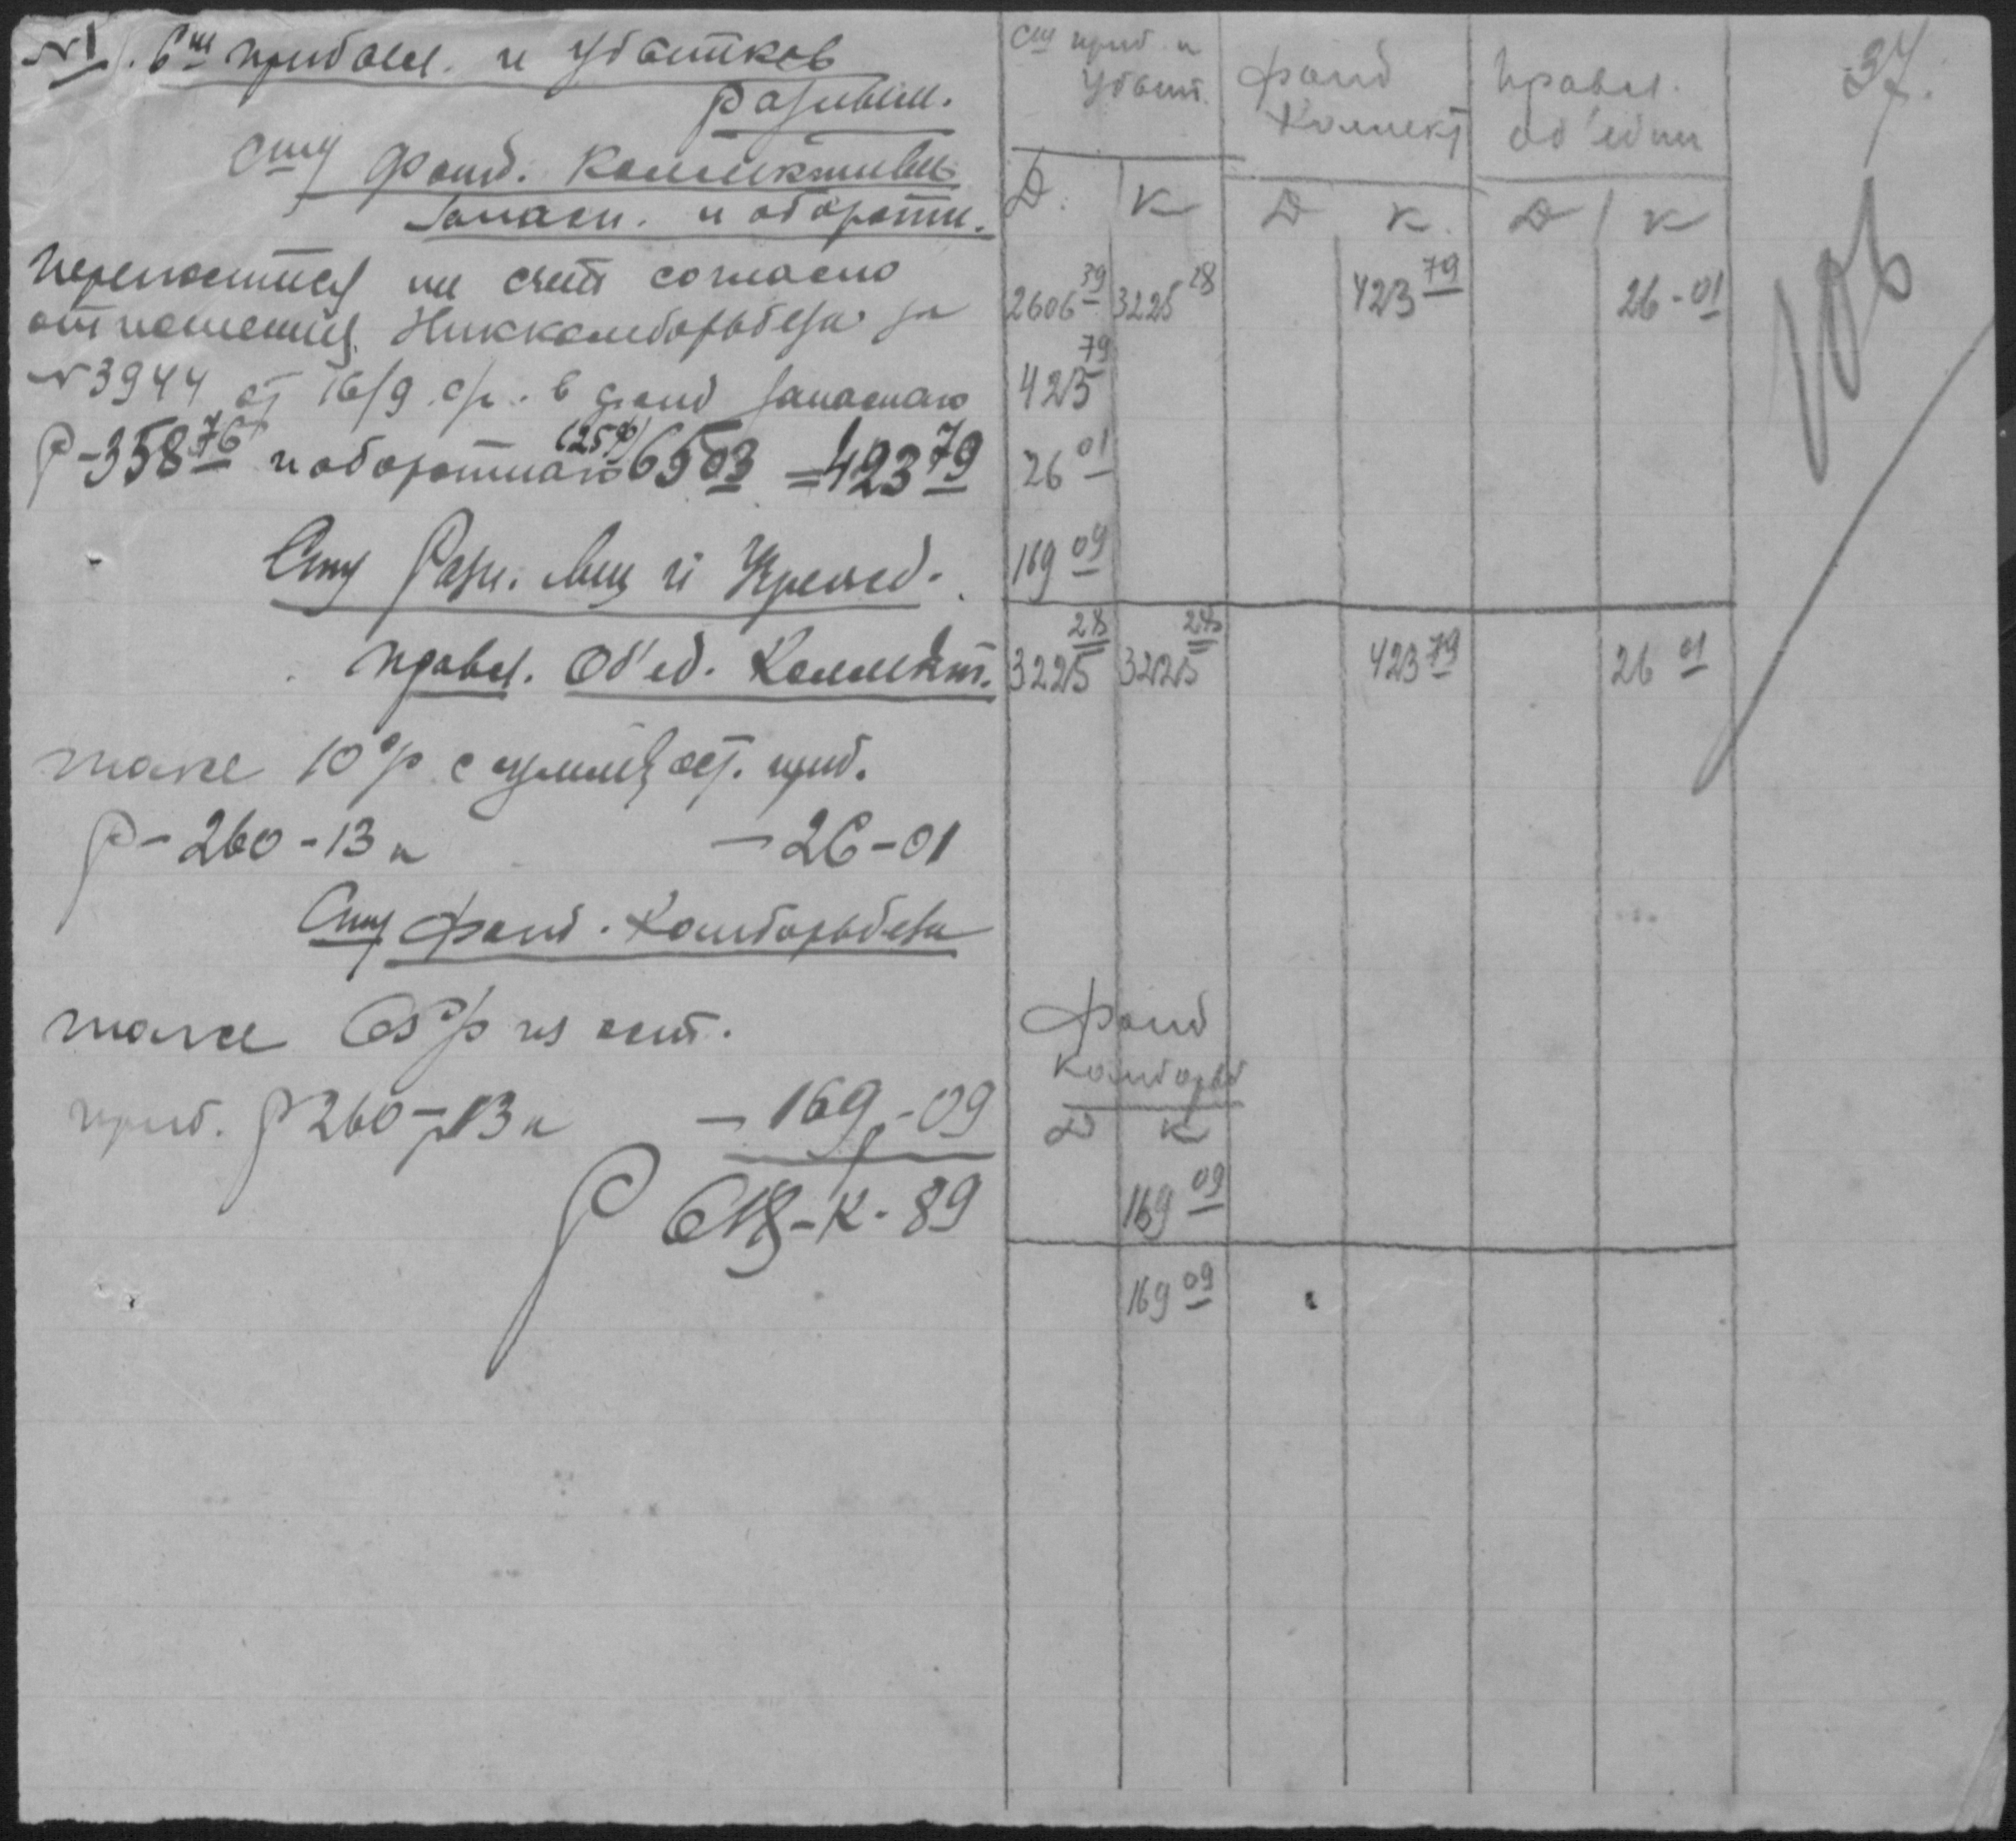 № 1. Сч. прибыл. и Убытков
Разным.
Сту Фонд. Коллективы
Запасн. и оборотн.
Переносится на счет согласно
отношения Никкомборьбеза за
№ 3944 от 16/9 с/г. в фонд запаснаго
Р-358 76 и оборотнаго (25%) 65 03 = 423 79
Сту Разн. Лиц и Учрежд.
Правл. Об'ед. Коллект.
тоже 10% с суммы ост. приб.
Р-260-13 к - 26-01
Сту Фонд. Комборьбеза
тоже 65% из ост.
приб. Р 260-13 к - 169-09
Р 618-к-89
Сту приб. и Убыт. Фонд Коллект Правл. об'един
Д. К Д К. Д К
2606 39 3225 28 423 79 26-01
423 79
26 01
169 09
3225 28 3225 28 423 79 26 01
Фонд
Комборьб
Д К
169 09
169 09
37.